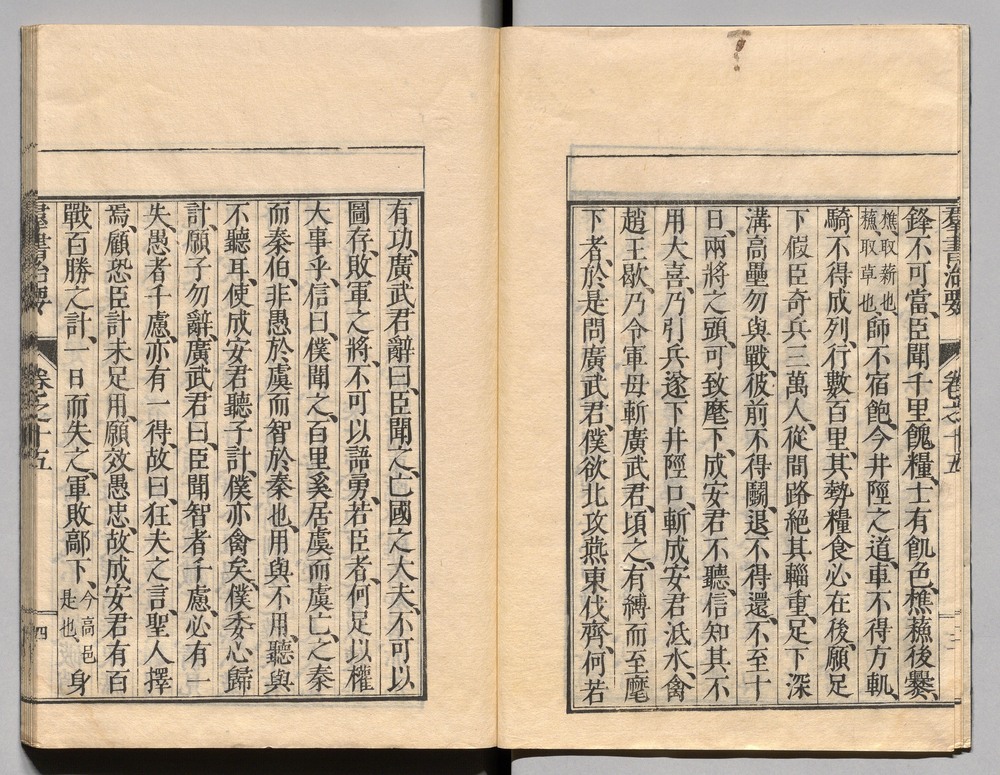 羣書治要 卷之十五
鋒不可當、臣聞千里餽糧、士有飢色、樵蘓後爨、
樵取薪也、
蘓取草也、
師不宿飽、今井陘之道、車不得方軌、
騎不得成列、行數百里、其勢糧食必在後、願足
下假臣奇兵三萬人、從間路絕其輜重、足下深
溝高壘勿與戰、彼前不得鬭、退不得還、不至十
日、兩將之頭、可致麾下、成安君不聽、信知其不
用、大喜、乃引兵遂下井陘口、斬成安君泜水、禽
趙王歇、乃令軍毋斬廣武君、頃之、有縛而至麾
下者、於是問廣武君、僕欲北攻燕東伐齊、何若
有功、廣武君辭曰、臣聞之、亡國之大夫、不可以
圖存、敗軍之將、不可以語勇、若臣者、何足以權
大事乎、信曰、僕聞之、百里奚居虞而虞亡、之秦
而秦伯、非愚於虞而智於秦也、用與不用、聽與
不聽耳、使成安君聽子計、僕亦禽矣、僕委心歸
計、願子勿辭、廣武君曰、臣聞智者千慮、必有一
失、愚者千慮、亦有一得、故曰、狂夫之言、聖人擇
焉、顧恐臣計未足用、願效愚忠、故成安君有百
戰百勝之計、一日而失之、軍敗鄗下、
今高邑
是也、
身
羣書治要 卷之十五 四